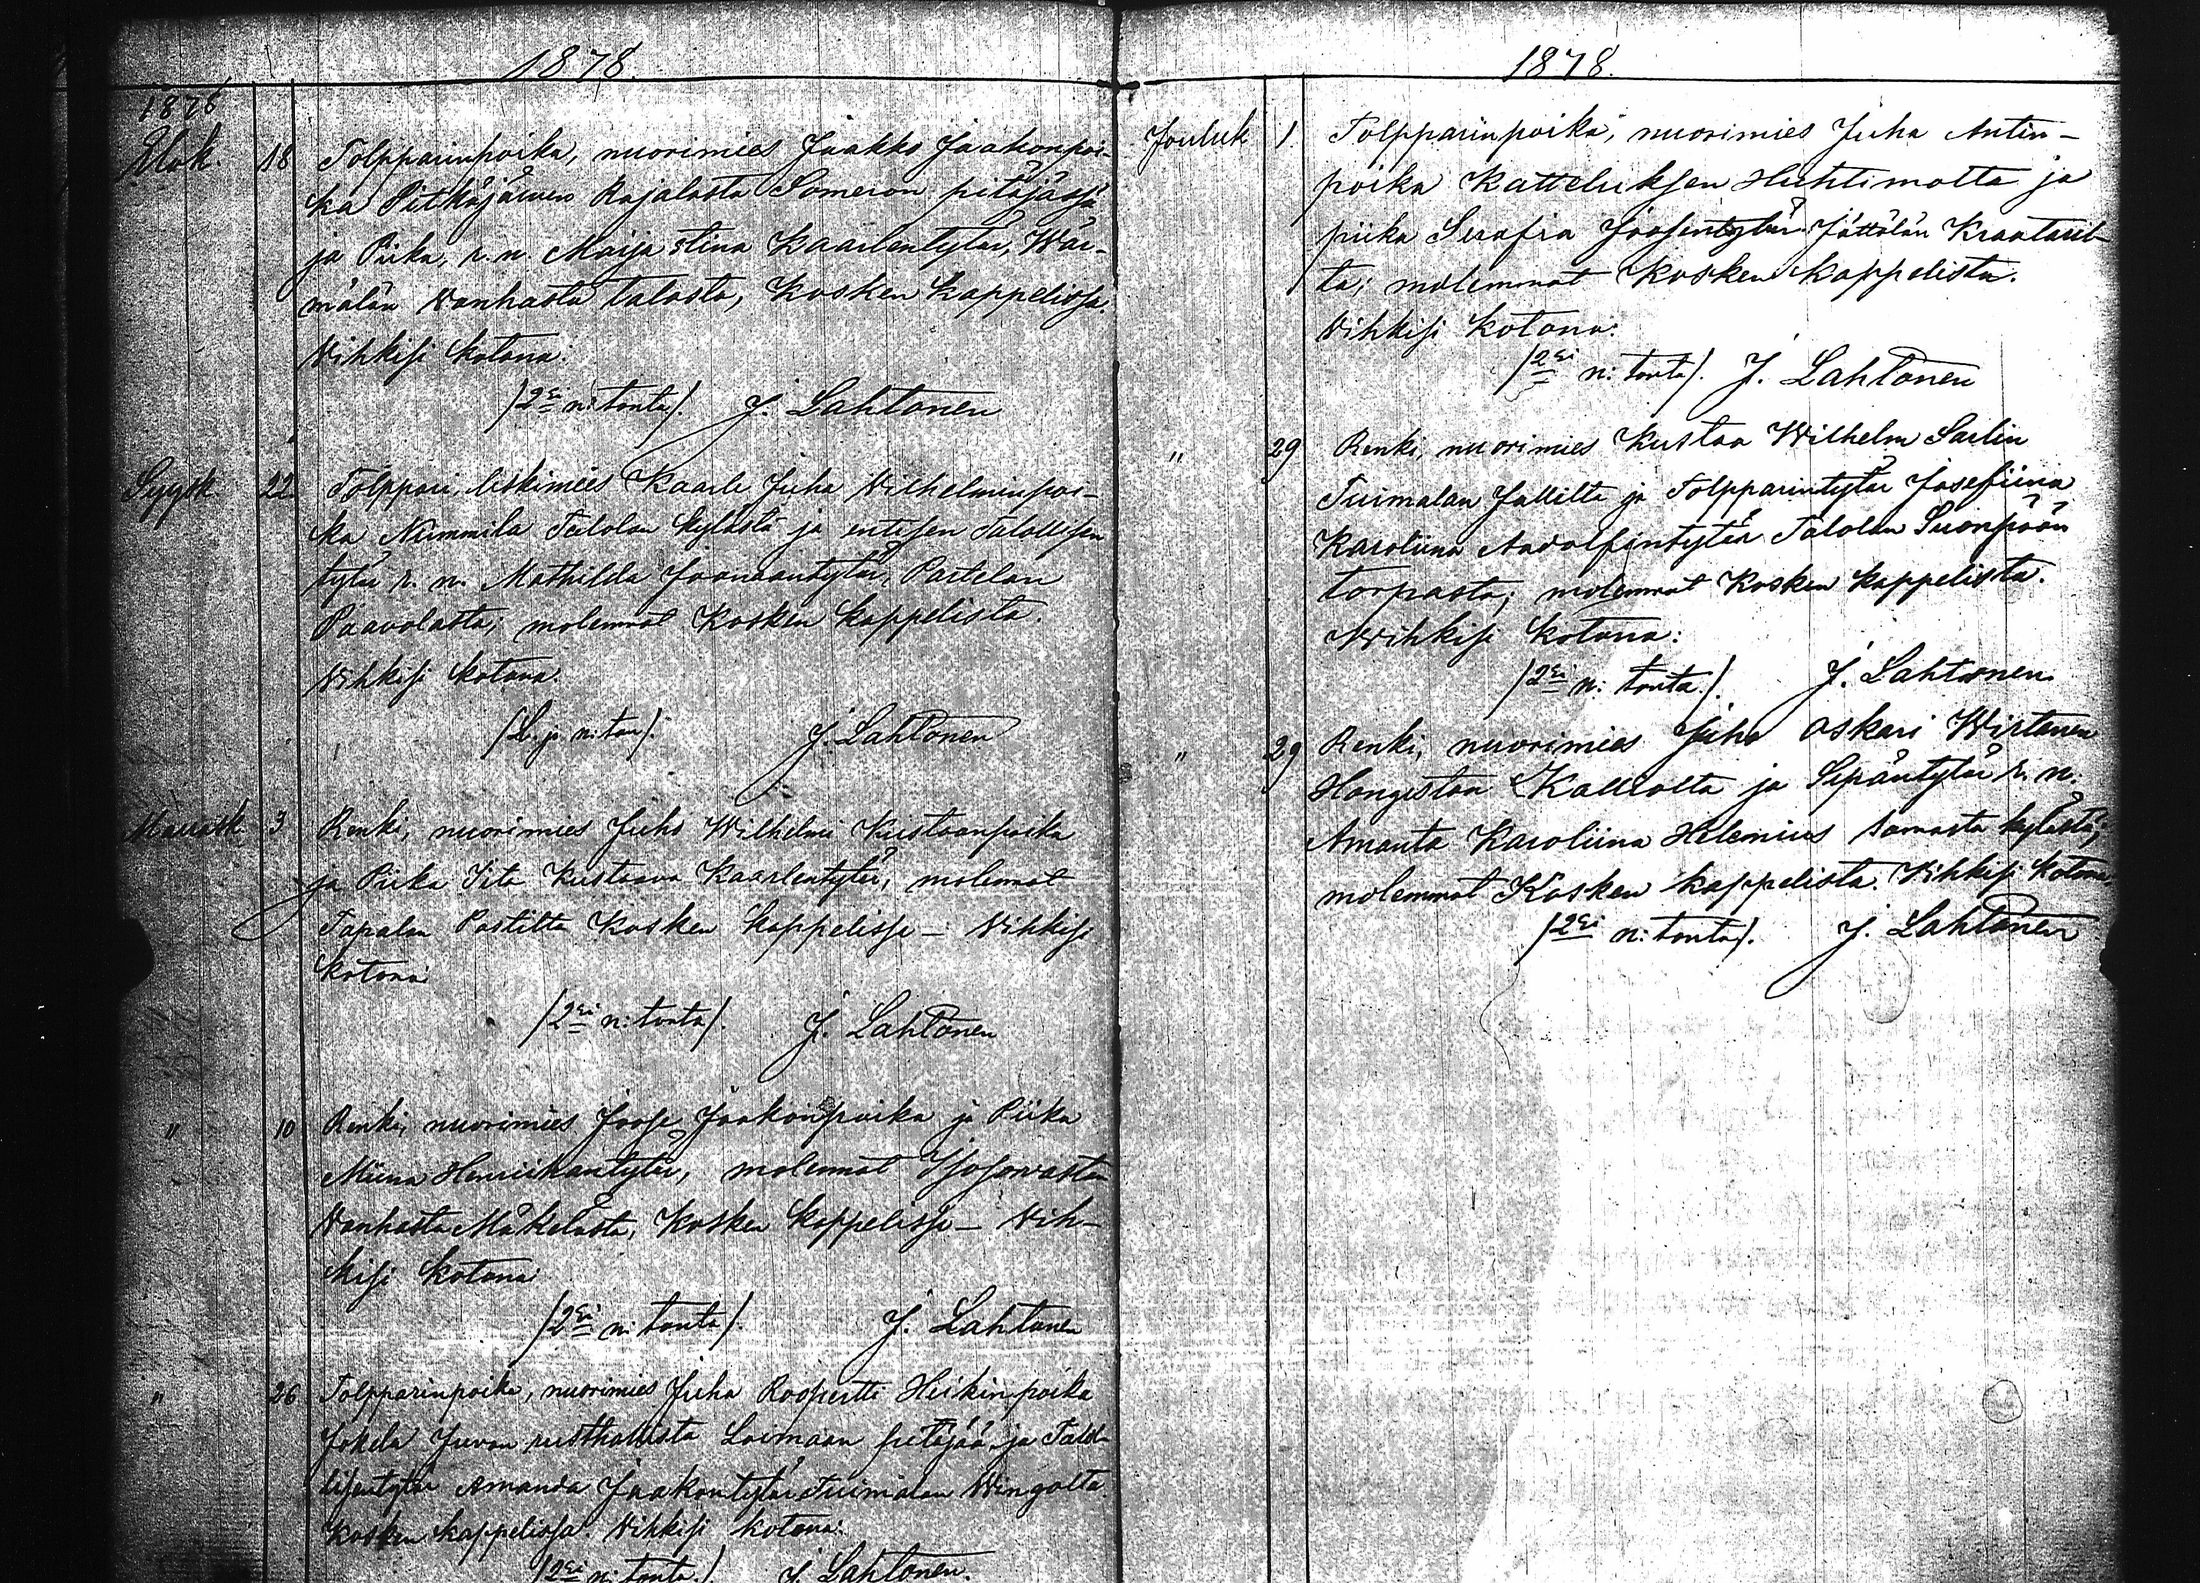 1878.
1878
Elok. 18 Tolpparinpoika, nuorimies Jaakko Jaakonpoi-
ka Pitkäjärven Rajalasta Someron pitäjässä
ja Piika, r. n. Maija Stina Kaarlentytär, Wär-
mälän Vanhasta talosta, Kosken kappelissa.
Vihkisi kotona:
/2ei n: tonta/. J. Lahtonen
Syysk. 22 Tolppari, leskimies Kaarle Juha Vilhelminpoi-
ka Nummila Talolan kylästä ja entisen Talollisen
tytär r. n. Mathilda Joonaantytär, Partelan
Paavolasta; molemmat Kosken kappelista.
Vihkisi kotona.
J. Lahtonen
Marrask. 3 Renki, nuorimies Juho Wilhelmi Kustaanpoika
ja Piika Iita Kustaava Kaarlentytär, molemmat
Tapalan Postilta Kosken kappelissa – Vihkisi
kotona:
/2ei n: tonta/. J. Lahtonen
" 10 Renki, nuorimies Joose Jaakonpoika ja Piika
Miina Henriikantytär, molemmat
Vanhasta Mäkelästä, Kosken kappelissa – Vih-
kisi kotona:
/2ei n: tonta/. J. Lahtonen
" 26 Tolpparinpoika, nuorimies Juha Roopertti Heikinpoika
Jokela Juvan rusthollista Loimaan pitäjää ja Talol-
lisentytär Amanda Jaakontytär Tuimalan Wingolta
Kosken kappelissa. Vihkisi kotona:
/2ei n: tonta./ J. Lahtonen.
1878.
Jouluk 1. Tolpparinpoika, nuorimies Juha Antin-
poika Katteluksen Huhtimolta ja
piika Serafia Joosentytär Jättälän Kraataril-
ta; molemmat Kosken kappelista.
Vihkisi kotona:
/2ei n: tonta/. J. Lahtonen
" 29 Renki, nuorimies Kustaa Wilhelm Sarlin
Tuimalan Jallilta ja Tolpparintytär Josefiina
Karoliina Aadolfintytär Talolan Suonpään
torpasta; molemmat Kosken kappelista.
Wihkisi kotona:
/2ei n: tonta./. J. Lahtonen
" 29 Renki, nuorimies Juho Oskari Wirtanen
Hongiston Kalliolta ja Sepäntytär r. n.
Amanta Karoliina Helenius samasta kylästä;
molemmat Kosken kappelista. Vihkisi kotona:
/2ei n: tonta/. J. Lahtonen